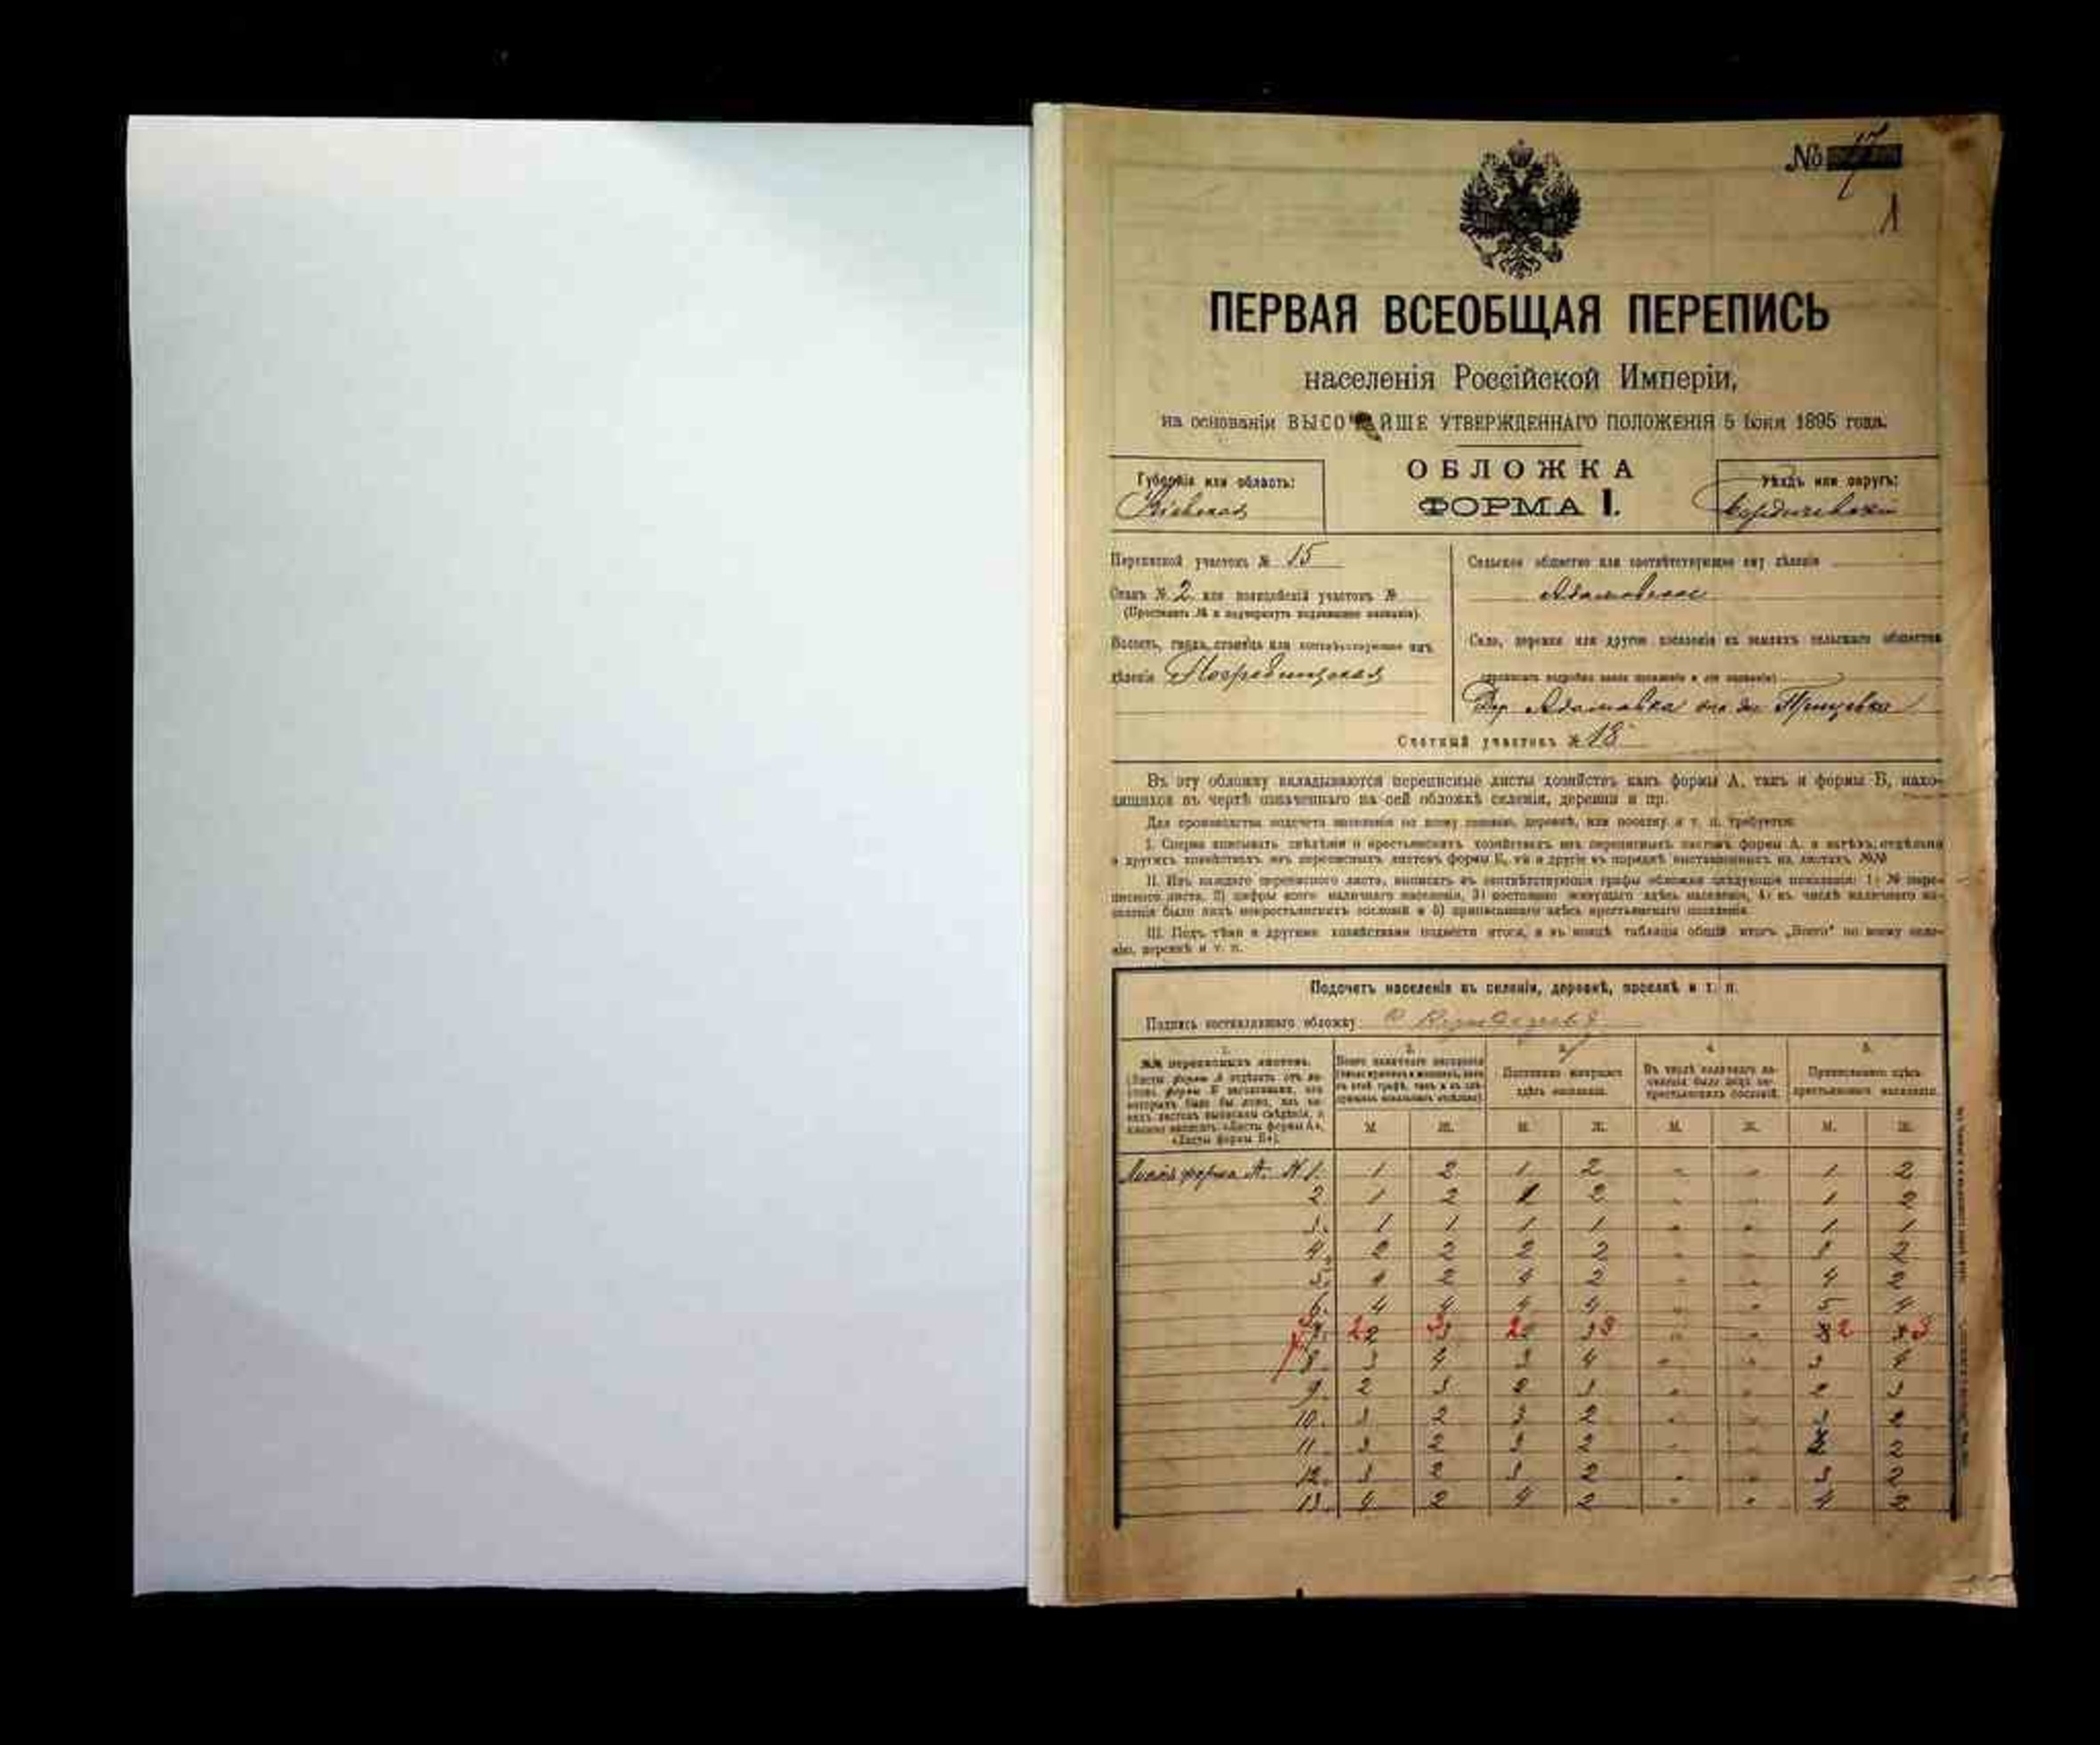 № 17
1
ПЕРВАЯ ВСЕОБЩАЯ ПЕРЕПИСЬ
населенія Россійской Имперіи,
на основаніи ВЫСОЧАЙШЕ УТВЕРЖДЕННАГО ПОЛОЖЕНІЯ 5 Іюня 1895 года.
Губернія или область:
Кіевская
ОБЛОЖКА
ФОРМА I.
Уѣздъ или округъ:
Бердичевскій
Переписной участокъ № 15
Станъ № 2 или полицейскій участокъ №
(Проставить № и подчеркнуть подлежащее названіе)
Волость, гмина, станица или соотвѣтствующее имъ
дѣленіе Погребищская
Сельское общество или соотвѣтствующее ему дѣленіе
Адамовское
Село, деревня или другое поселеніе на земляхъ сельскаго общества
(прописать подробно какое поселеніе и его названіе)
Дер. Адамовка она же
Счетный участокъ № 18
Въ эту обложку вкладываются переписные листы хозяйствъ какъ формы А, такъ и формы Б, нахо-
дящихся въ чертѣ означеннаго на сей обложкѣ селенія, деревни и пр.
Для производства подсчета населенія по всему селенію, деревнѣ, или поселку и т. п. требуется:
I. Сперва выписывать свѣдѣнія о крестьянскихъ хозяйствахъ изъ переписныхъ листовъ формы А, а затѣмъ, отдѣльно
о другихъ хозяйствахъ изъ переписныхъ листовъ формы Б, тѣ и другіе въ порядкѣ выставленныхъ на листахъ №№
II. Изъ каждаго переписнаго листа, выписать въ соотвѣтствующія графы обложки слѣдующія показанія: 1) № пере-
писнаго листа, 2) цифры всего наличнаго населенія, 3) постоянно живущаго здѣсь населенія, 4) въ числѣ наличнаго на-
селенія было лицъ некрестьянскихъ сословій и 5) приписаннаго здѣсь крестьянскаго населенія.
III. Подъ тѣми и другими хозяйствами подвести итоги, а въ концѣ таблицы общій итогъ „Всего" по всему селе-
нію, деревнѣ и т. п.
Подсчетъ населенія въ селеніи, деревнѣ, поселкѣ и т. п.
Подпись составлявшаго обложку
1. 2. 3. 4. 5.
№№ переписныхъ листовъ.
Всего наличнаго населенія
Постоянно живущаго
здѣсь населенія.
Въ числѣ наличнаго на-
селенія было лицъ не-
крестьянскихъ сословій.
Приписаннаго здѣсь
крестьянскаго населенія.
М. Ж. М. Ж. М. Ж. М. Ж.
Листъ форма А. № 1. 1 2 1 2 " " 1 2
2 1 2 1 2 " " 1 2
3. 1 1 1 1 " " 1 1
4. 2 2 2 2 " " 3 2
5. 4 2 4 2 " " 4 2
6. 4 4 4 4 " " 5 4
7. 2 3 2 3 " " 2 3
8. 3 4 3 4 " " 3 4
9. 2 3 2 3 " " 2 3
10. 3 2 3 2 " " 2
11. 3 2 3 2 " " 2
12. 3 2 3 2 " " 3 2
13. 4 2 4 2 " " 4 2